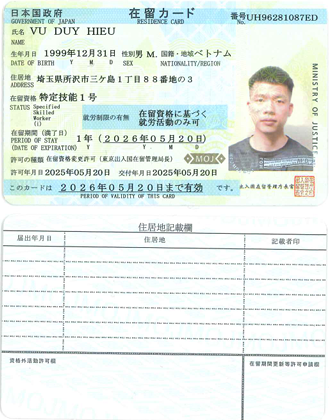 日本国政府 在留カード 番号UH96281087ED
GOVERNMENT OF JAPAN RESIDENCE CARD No.
氏名 VU DUY HIEU
NAME
生年月日 1999年12月31日 性別 男 M. 国籍・地域 ベトナム
DATE OF BIRTH Y M D SEX NATIONALITY/REGION
住居地 埼玉県所沢市三ケ島1丁目88番地の3
ADDRESS
在留資格 特定技能1号
STATUS Specified Skilled Worker (i)
就労制限の有無 在留資格に基づく就労活動のみ可
在留期間(満了日) 1年(2026年05月20日)
PERIOD OF STAY
(DATE OF EXPIRATION) Y M D
許可の種類 在留資格変更許可(東京出入国在留管理局長)
MOJ
許可年月日 2025年05月20日 交付年月日 2025年05月20日
このカードは 2026年05月20日まで有効 です。
PERIOD OF VALIDITY OF THIS CARD
MINISTRY OF JUSTICE
住居地記載欄
届出年月日 住居地 記載者印
資格外活動許可欄 在留期間更新等許可申請欄